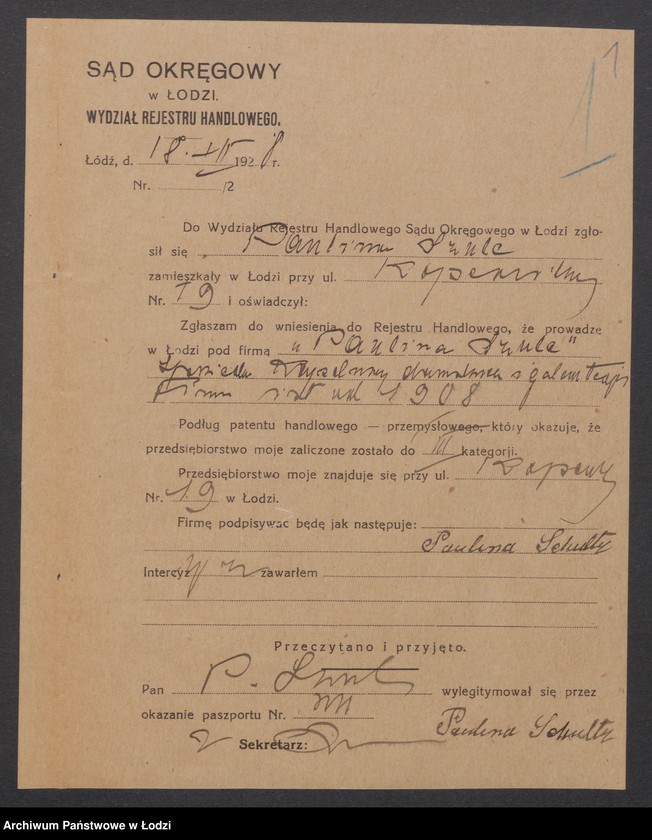 1 1
SĄD OKRĘGOWY
w ŁODZI.
WYDZIAŁ REJESTRU HANDLOWEGO.
Łódź, d. 18. XII 1928 r.
Nr. /2
Do Wydziału Rejestru Handlowego Sądu Okręgowego w Łodzi zgło-
sił się Paulina Szulc
zamieszkały w Łodzi przy ul.
Nr. 19 i oświadczył:
Zgłaszam do wniesienia do Rejestru Handlowego, że prowadzę
w Łodzi pod firmą „Paulina Szulc"
galanterji
Firma ist od 1908
Podług patentu handlowego — przemysłowego, który okazuje, że
przedsiębiorstwo moje zaliczone zostało do III kategorji.
Przedsiębiorstwo moje znajduje się przy ul.
Nr. 19 w Łodzi.
Firmę podpisywać będę jak następuje:
Paulina Schultz
Intercyzy nie zawarłem
Przeczytano i przyjęto.
Pan P. Szulc wylegitymował się przez
okazanie paszportu Nr.
Paulina Schultz
Sekretarz:
Archiwum Państwowe w Łodzi